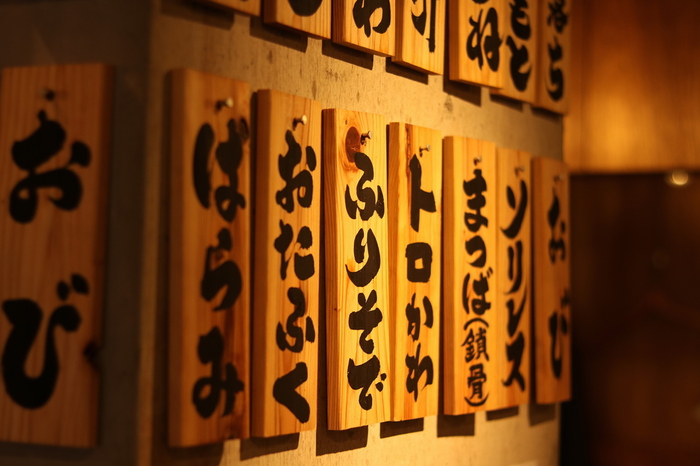 おび
はらみ
おたふく
ふりそで
トロかわ
まつば(鎖骨)
ソリレス
おび